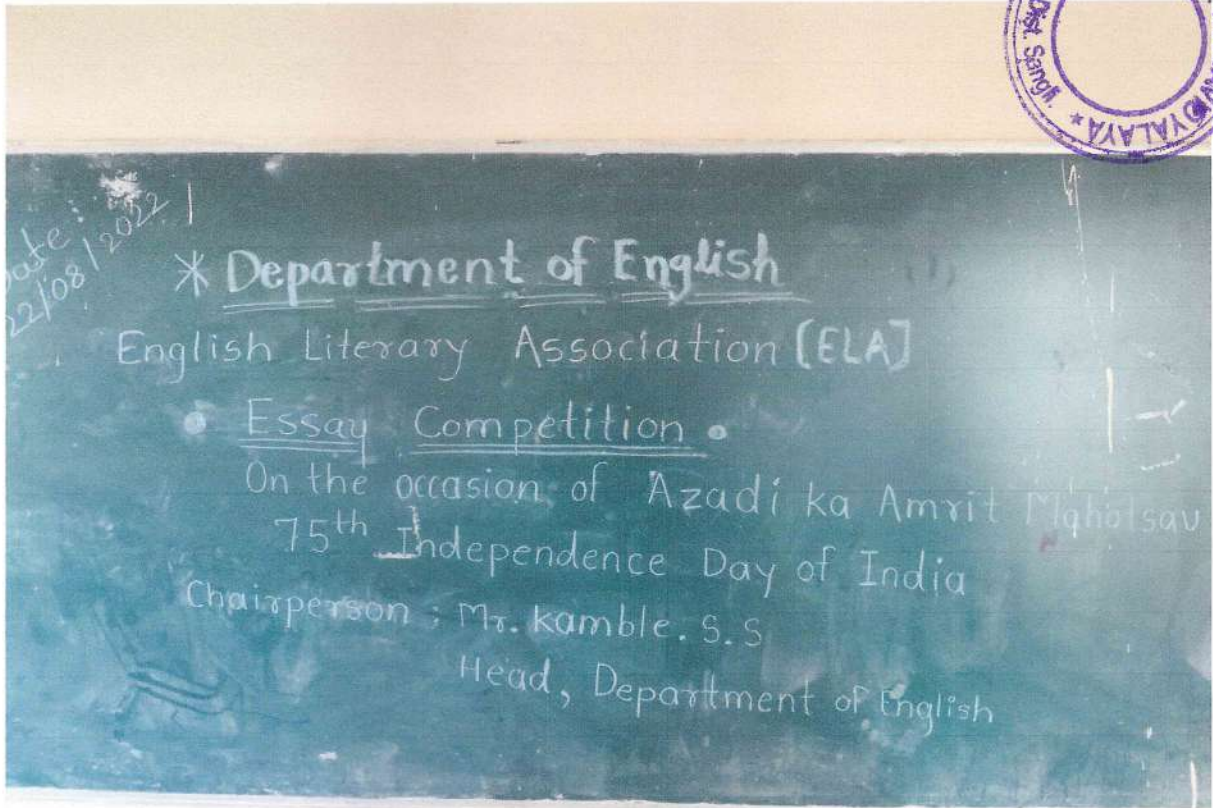 Dist. Sangli.
* 
Date :
22/08/2022
* Department of English
English Literary Association [ELA]
• Essay Competition •
On the occasion of Azadi ka Amrit Mahotsav
75th Independence Day of India
Chairperson : Mr. Kamble. S. S
Head, Department of English